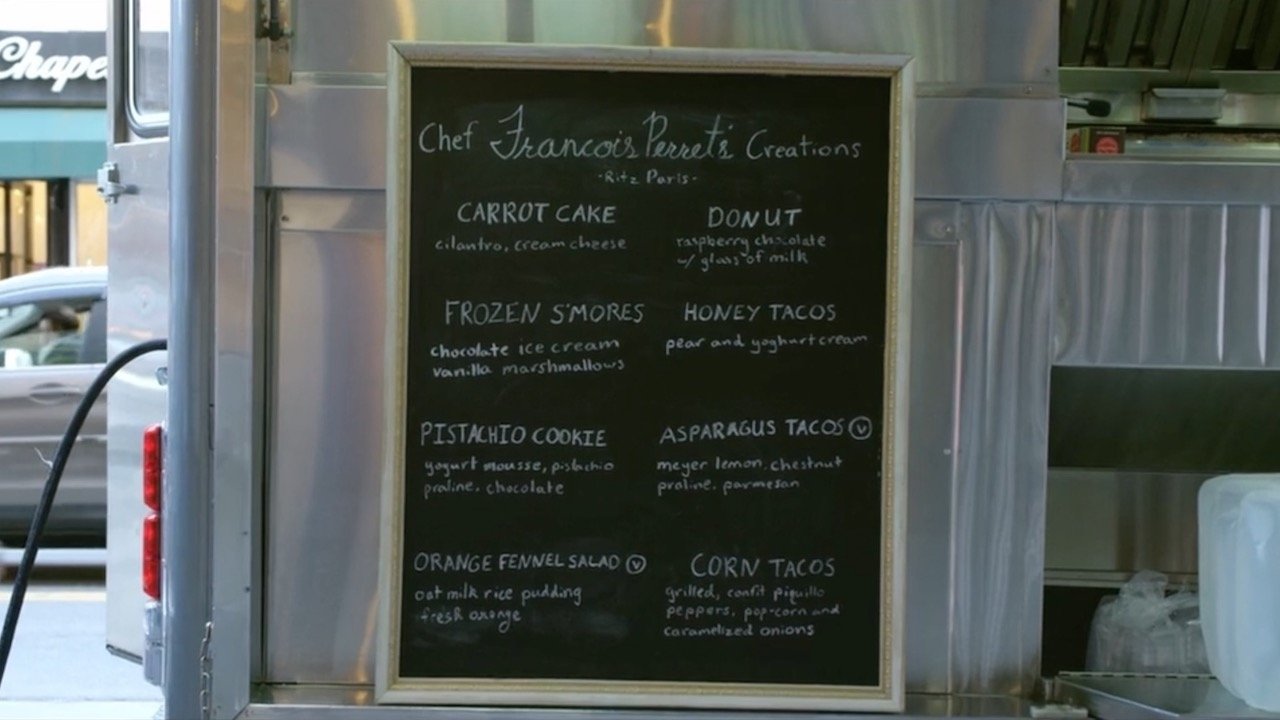 Chape
Chef Francois Perret's Creations
-Ritz Paris-
CARROT CAKE
cilantro, cream cheese
DONUT
raspberry chocolate
w/ glass of milk
FROZEN S'MORES
chocolate ice cream
vanilla marshmallows
HONEY TACOS
pear and yoghurt cream
PISTACHIO COOKIE
yogurt mousse, pistachio
praline, chocolate
ASPARAGUS TACOS V
meyer lemon, chestnut
praline, parmesan
ORANGE FENNEL SALAD V
oat milk rice pudding
fresh orange
CORN TACOS
grilled, confit piquillo
peppers, pop-corn and
caramelized onions